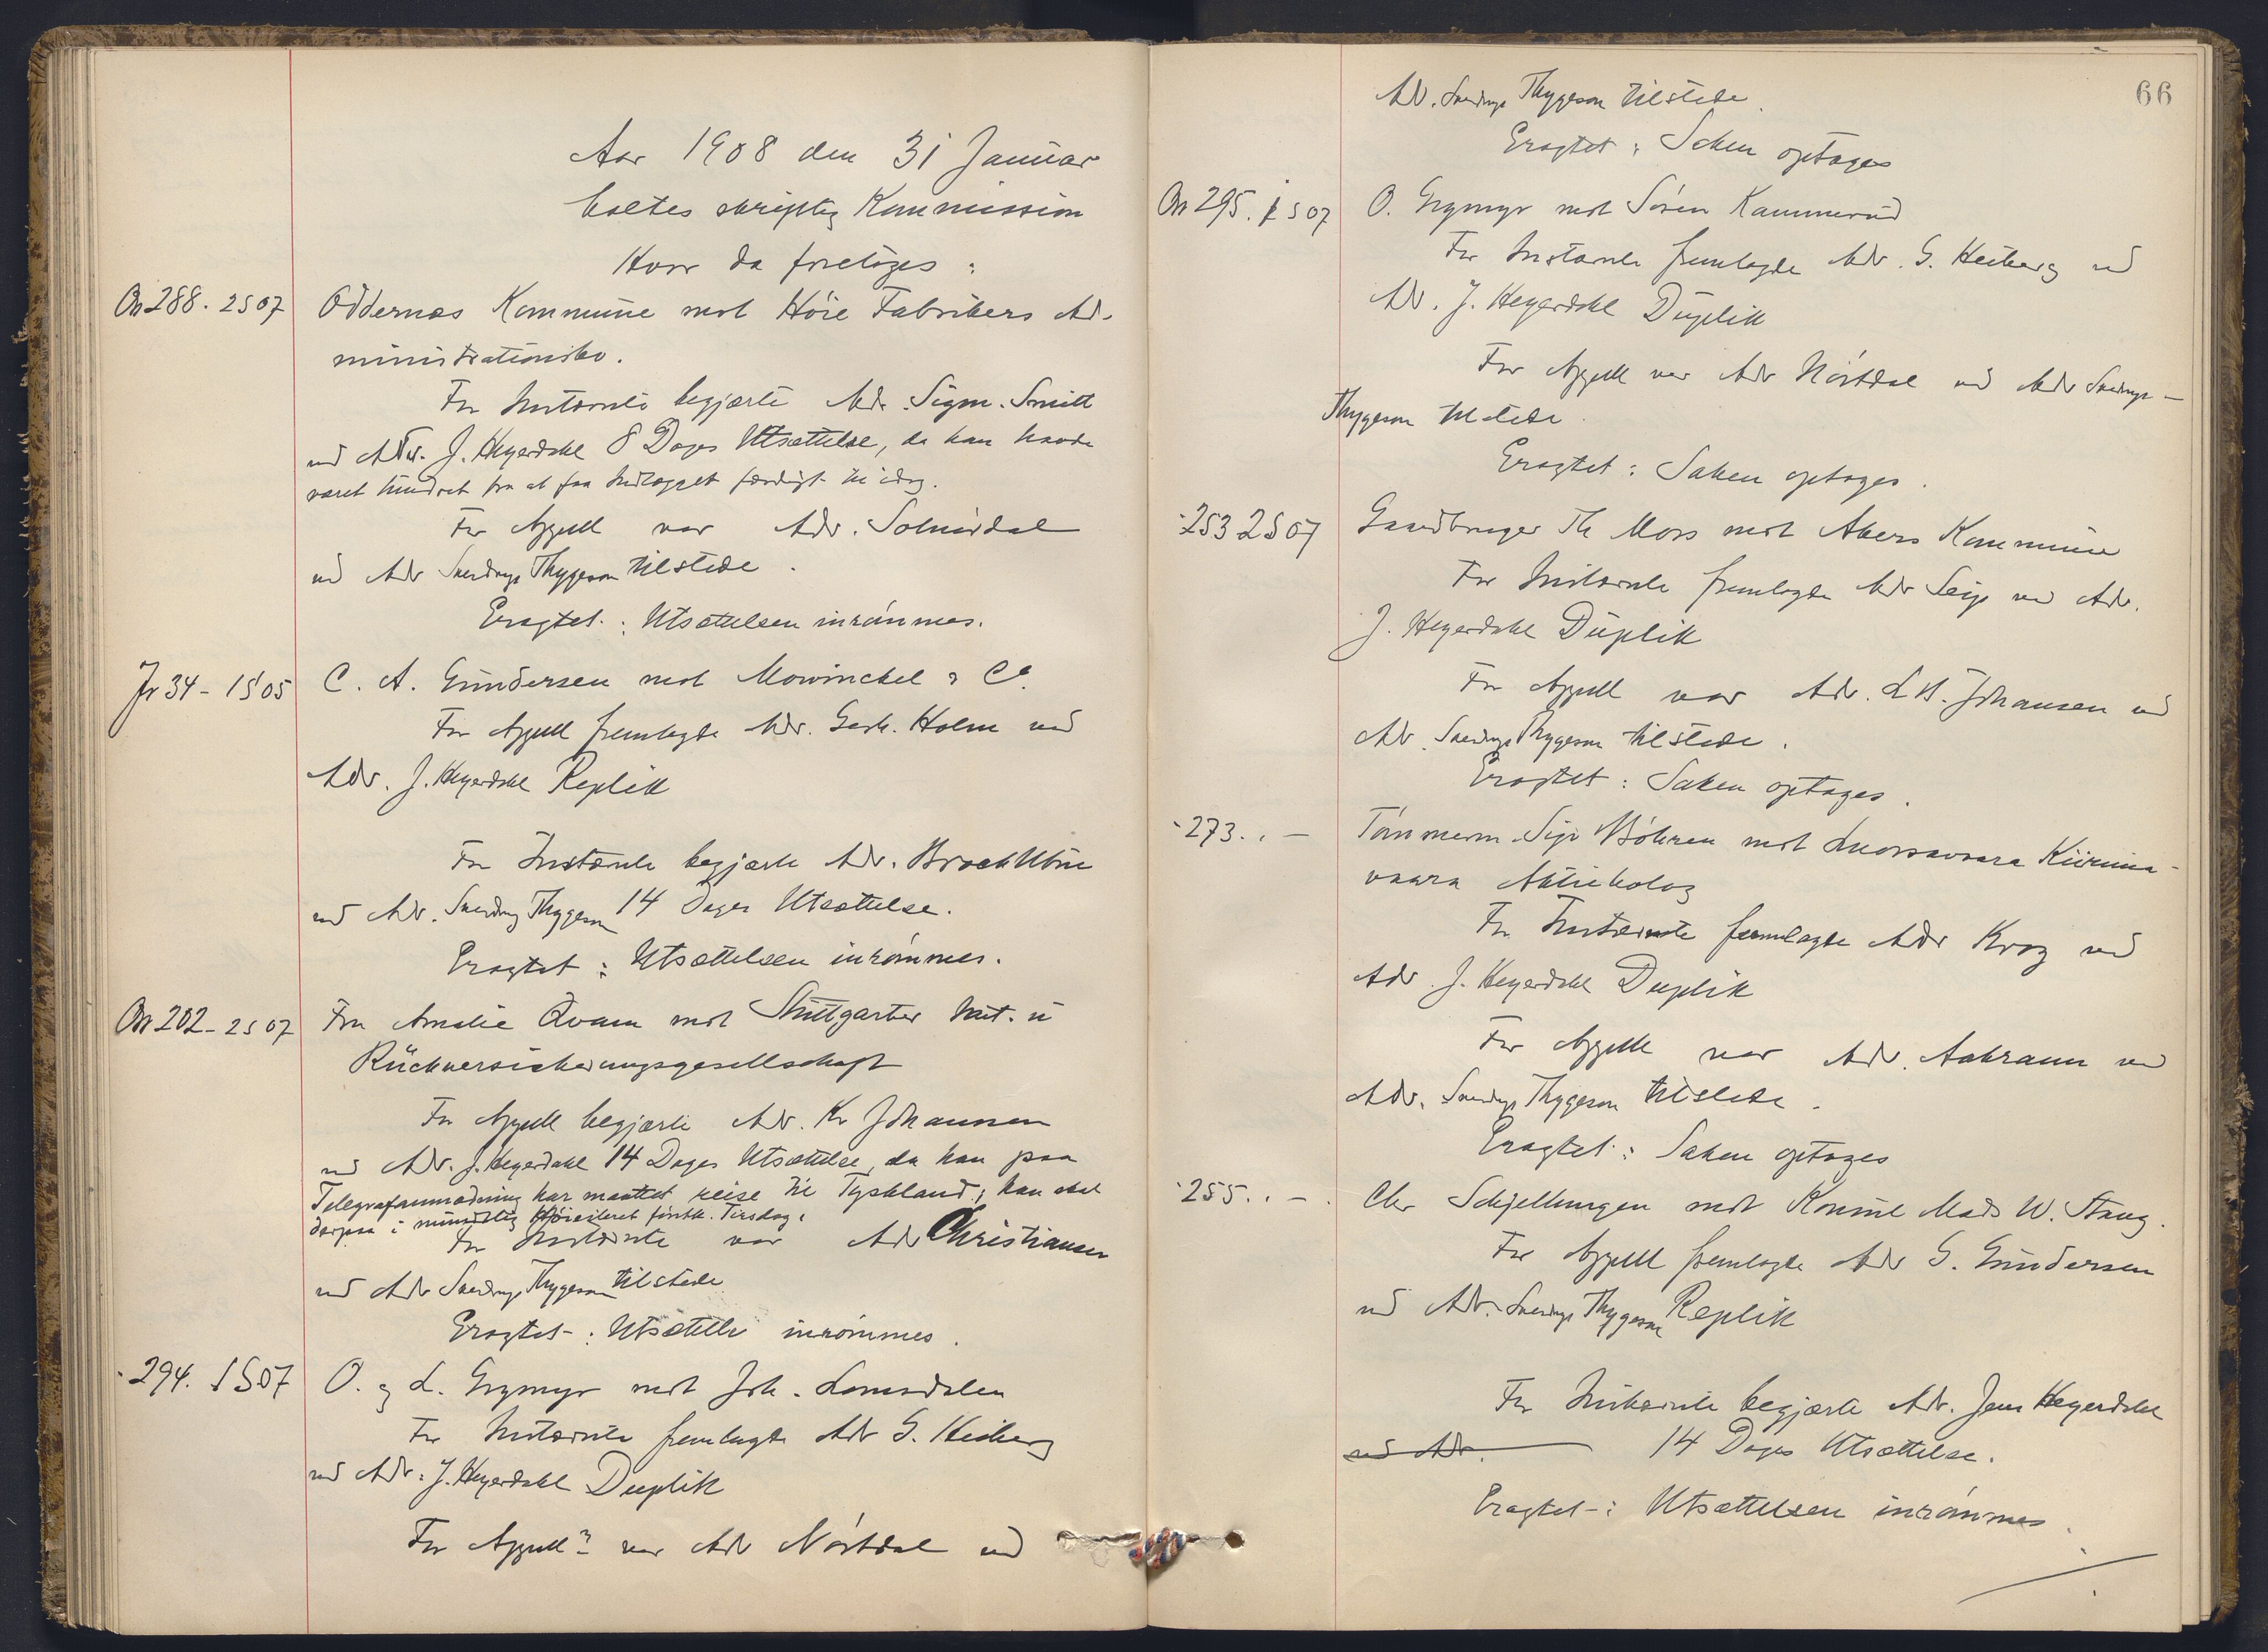 Aar 1908 den 31 Januar
holtes skriftlig Kommission
Hvor da foretoges:
On 288. 2S07 Oddernes Kommune mot Höie Fabrikers Ad-
ministrationsbo.
For Instævnte begjærte Adv. Sigm. Smitt
ved Adv. J. Heyerdahl 8 Dages Utsættelse, da han havde
været hindret fra at faa Indlægget færdigt til idag.
For Appell var Adv. Solnördal
ved Adv Sverdrup Thygeson tilstede.
Eragtet: Utsættelsen inrömmes.
Jr 34 - 1S05 C. A. Gundersen mot Mowinckel & Co.
For Appell fremlagde Adv. Gerh. Holm ved
Adv. J. Heyerdahl Replik
For Instævnte begjærte Adv. Broch Utne
ved Adv. Sverdrup Thygeson 14 Dages Utsættelse.
Eragtet: Utsættelsen inrömmes.
On 202 - 2S07 Fru Amalie Qvam mot Stuttgarter Mit. u
Rückversicherungsgesellschaft
For Appell begjærte Adv. Kr Johannsen
ved Adv. J. Heyerdahl 14 Dages Utsættelse, da han paa
Telegrafanmodning har maattet reise til Tyskland; han skal
derpaa i mundtlig Höiesteret förstk. Tirsdag.
For Instævnte var Adv Christiansen
ved Adv Sverdrup Thygeson tilstede
Eragtet: Utsættelse inrömmes.
- 294. 1S07 O. og L. Grymyr mot Joh. Lomsdalen
For Instævnte fremlagde Adv G. Heiberg
ved Adv. J. Heyerdahl Duplik
For Appell var Adv Nörtdal ved
66
Adv. Sverdrup Thygeson tilstede.
Eragtet: Saken optages
On 295. 1S07 O. Grymyr mot Sören Kammerud
For Instævnte fremlagde Adv. G. Heiberg ved
Adv. J. Heyerdahl Duplik
For Appell var Adv Nörtdal ved Adv Sverdrup-
Thygeson tilstede.
Eragtet: Saken optages.
- 253 2S07 Gaardbruger Th Moss mot Akers Kommune
For Instævnte fremlagde Adv Seip ved Adv.
J. Heyerdahl Duplik
For Appell var Adv. L H. Johansen ved
Adv. Sverdrup Thygeson tilstede.
Eragtet: Saken optages.
- 273. . - Tömmerm. Sigv Böhren mot Luossavaara Kiiruna-
vaara Aktiebolag
For Instævnte fremlagde Adv Krog ved
Adv. J. Heyerdahl Duplik
For Appell var Adv. Aakrann ved
Adv. Sverdrup Thygeson tilstede.
Eragtet: Saken optages
- 255. . - Chr Schjellungen mot Konsul Mads W. Stang.
For Appell fremlagde Adv G. Gundersen
ved Adv. Sverdrup Thygeson Replik
For Instævnte begjærte Adv. Jens Heyerdahl
ved Adv. 14 Dages Utsættelse.
Eragtet: Utsættelsen inrömmes.